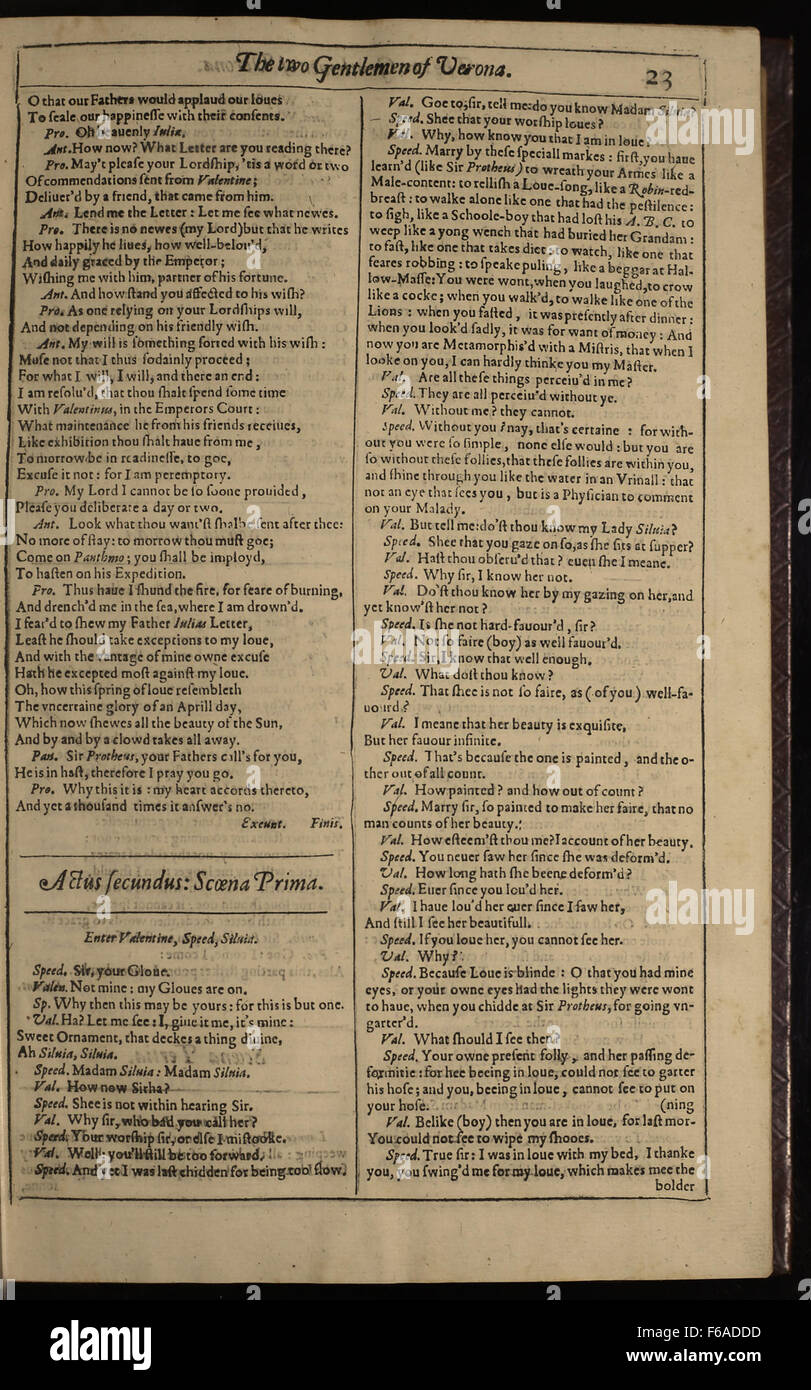 The two Gentlemen of Verona.
23
O that our Fathers would applaud our loues
To ſeale our happineſſe with their conſents.
Pro. Oh heauenly Iulia.
Ant. How now? What Letter are you reading there?
Pro. May't pleaſe your Lordſhip, 'tis a word or two
Of commendations ſent from Valentine;
Deliuer'd by a friend, that came from him.
Ant. Lend me the Letter: Let me ſee what newes.
Pro. There is no newes (my Lord) but that he writes
How happily he liues, how well-belou'd,
And daily graced by the Emperor;
Wiſhing me with him, partner of his fortune.
Ant. And how ſtand you affected to his wiſh?
Pro. As one relying on your Lordſhips will,
And not depending on his friendly wiſh.
Ant. My will is ſomething ſorted with his wiſh:
Muſe not that I thus ſodainly proceed;
For what I will, I will, and there an end:
I am reſolu'd, that thou ſhalt ſpend ſome time
With Valentinus, in the Emperors Court:
What maintenance he from his friends receiues,
Like exhibition thou ſhalt haue from me,
To morrow be in readineſſe, to goe,
Excuſe it not: for I am peremptory.
Pro. My Lord I cannot be ſo ſoone prouided,
Pleaſe you deliberate a day or two.
Ant. Look what thou want'ſt ſhalbe ſent after thee:
No more of ſtay: to morrow thou muſt goe;
Come on Panthmo; you ſhall be imployd,
To haſten on his Expedition.
Pro. Thus haue I ſhund the fire, for feare of burning,
And drench'd me in the ſea, where I am drown'd.
I fear'd to ſhew my Father Iulias Letter,
Leaſt he ſhould take exceptions to my loue,
And with the vantage of mine owne excuſe
Hath he excepted moſt againſt my loue.
Oh, how this ſpring of loue reſembleth
The vncertaine glory of an Aprill day,
Which now ſhewes all the beauty of the Sun,
And by and by a clowd takes all away.
Pan. Sir Protheus, your Fathers call's for you,
He is in haſt, therefore I pray you go.
Pro. Why this it is: my heart accords thereto,
And yet a thouſand times it anſwer's no.
Exeunt. Finis.
Actus ſecundus: Scœna Prima.
Enter Valentine, Speed, Siluia.
Speed. Sir, your Gloue.
Valen. Not mine: my Gloues are on.
Sp. Why then this may be yours: for this is but one.
Val. Ha? Let me ſee: I, giue it me, it's mine:
Sweet Ornament, that deckes a thing diuine,
Ah Siluia, Siluia.
Speed. Madam Siluia: Madam Siluia.
Val. How now Sirha?
Speed. Shee is not within hearing Sir.
Val. Why ſir, who bad you call her?
Speed. Your worſhip ſir, or elſe I miſtooke.
Val. Well: you'll ſtill be too forward.
Speed. And yet I was laſt chidden for being too ſlow.
Val. Goe to, ſir, tell me: do you know Madam Siluia?
Speed. Shee that your worſhip loues?
Val. Why, how know you that I am in loue?
Speed. Marry by theſe ſpeciall markes: firſt, you haue
learn'd (like Sir Protheus) to wreath your Armes like a
Male-content: to relliſh a Loue-ſong, like a Robin-red-
breaſt: to walke alone like one that had the peſtilence:
to ſigh, like a Schoole-boy that had loſt his A. B. C. to
weep like a yong wench that had buried her Grandam:
to faſt, like one that takes diet: to watch, like one that
feares robbing: to ſpeake puling, like a beggar at Hal-
low-Maſſe: You were wont, when you laughed, to crow
like a cocke; when you walk'd, to walke like one of the
Lions: when you faſted, it was preſently after dinner:
when you look'd ſadly, it was for want of money: And
now you are Metamorphis'd with a Miſtris, that when I
looke on you, I can hardly thinke you my Maſter.
Val. Are all theſe things perceiu'd in me?
Speed. They are all perceiu'd without ye.
Val. Without me? they cannot.
Speed. Without you? nay, that's certaine: for with-
out you were ſo ſimple, none elſe would: but you are
ſo without theſe follies, that theſe follies are within you,
and ſhine through you like the water in an Vrinall: that
not an eye that ſees you, but is a Phyſician to comment
on your Malady.
Val. But tell me: do'ſt thou know my Lady Siluia?
Speed. Shee that you gaze on ſo, as ſhe ſits at ſupper?
Val. Haſt thou obſeru'd that? euen ſhe I meane.
Speed. Why ſir, I know her not.
Val. Do'ſt thou know her by my gazing on her, and
yet know'ſt her not?
Speed. Is ſhe not hard-fauour'd, ſir?
Val. Not ſo faire (boy) as well fauour'd.
Speed. Sir, I know that well enough.
Val. What doſt thou know?
Speed. That ſhee is not ſo faire, as (of you) well-fa-
uourd?
Val. I meane that her beauty is exquiſite,
But her fauour infinite.
Speed. That's becauſe the one is painted, and the o-
ther out of all count.
Val. How painted? and how out of count?
Speed. Marry ſir, ſo painted to make her faire, that no
man counts of her beauty.
Val. How eſteem'ſt thou me? I account of her beauty.
Speed. You neuer ſaw her ſince ſhe was deform'd.
Val. How long hath ſhe beene deform'd?
Speed. Euer ſince you lou'd her.
Val. I haue lou'd her euer ſince I ſaw her,
And ſtill I ſee her beautifull.
Speed. If you loue her, you cannot ſee her.
Val. Why?
Speed. Becauſe Loue is blinde: O that you had mine
eyes, or your owne eyes had the lights they were wont
to haue, when you chidde at Sir Protheus, for going vn-
garter'd.
Val. What ſhould I ſee then?
Speed. Your owne preſent folly, and her paſſing de-
formitie: for hee beeing in loue, could not ſee to garter
his hoſe; and you, beeing in loue, cannot ſee to put on
your hoſe. (ning
Val. Belike (boy) then you are in loue, for laſt mor-
You could not ſee to wipe my ſhooes.
Speed. True ſir: I was in loue with my bed, I thanke
you, you ſwing'd me for my loue, which makes mee the
bolder
alamy
alamy
alamy
Image ID: F6ADDD
www.alamy.com